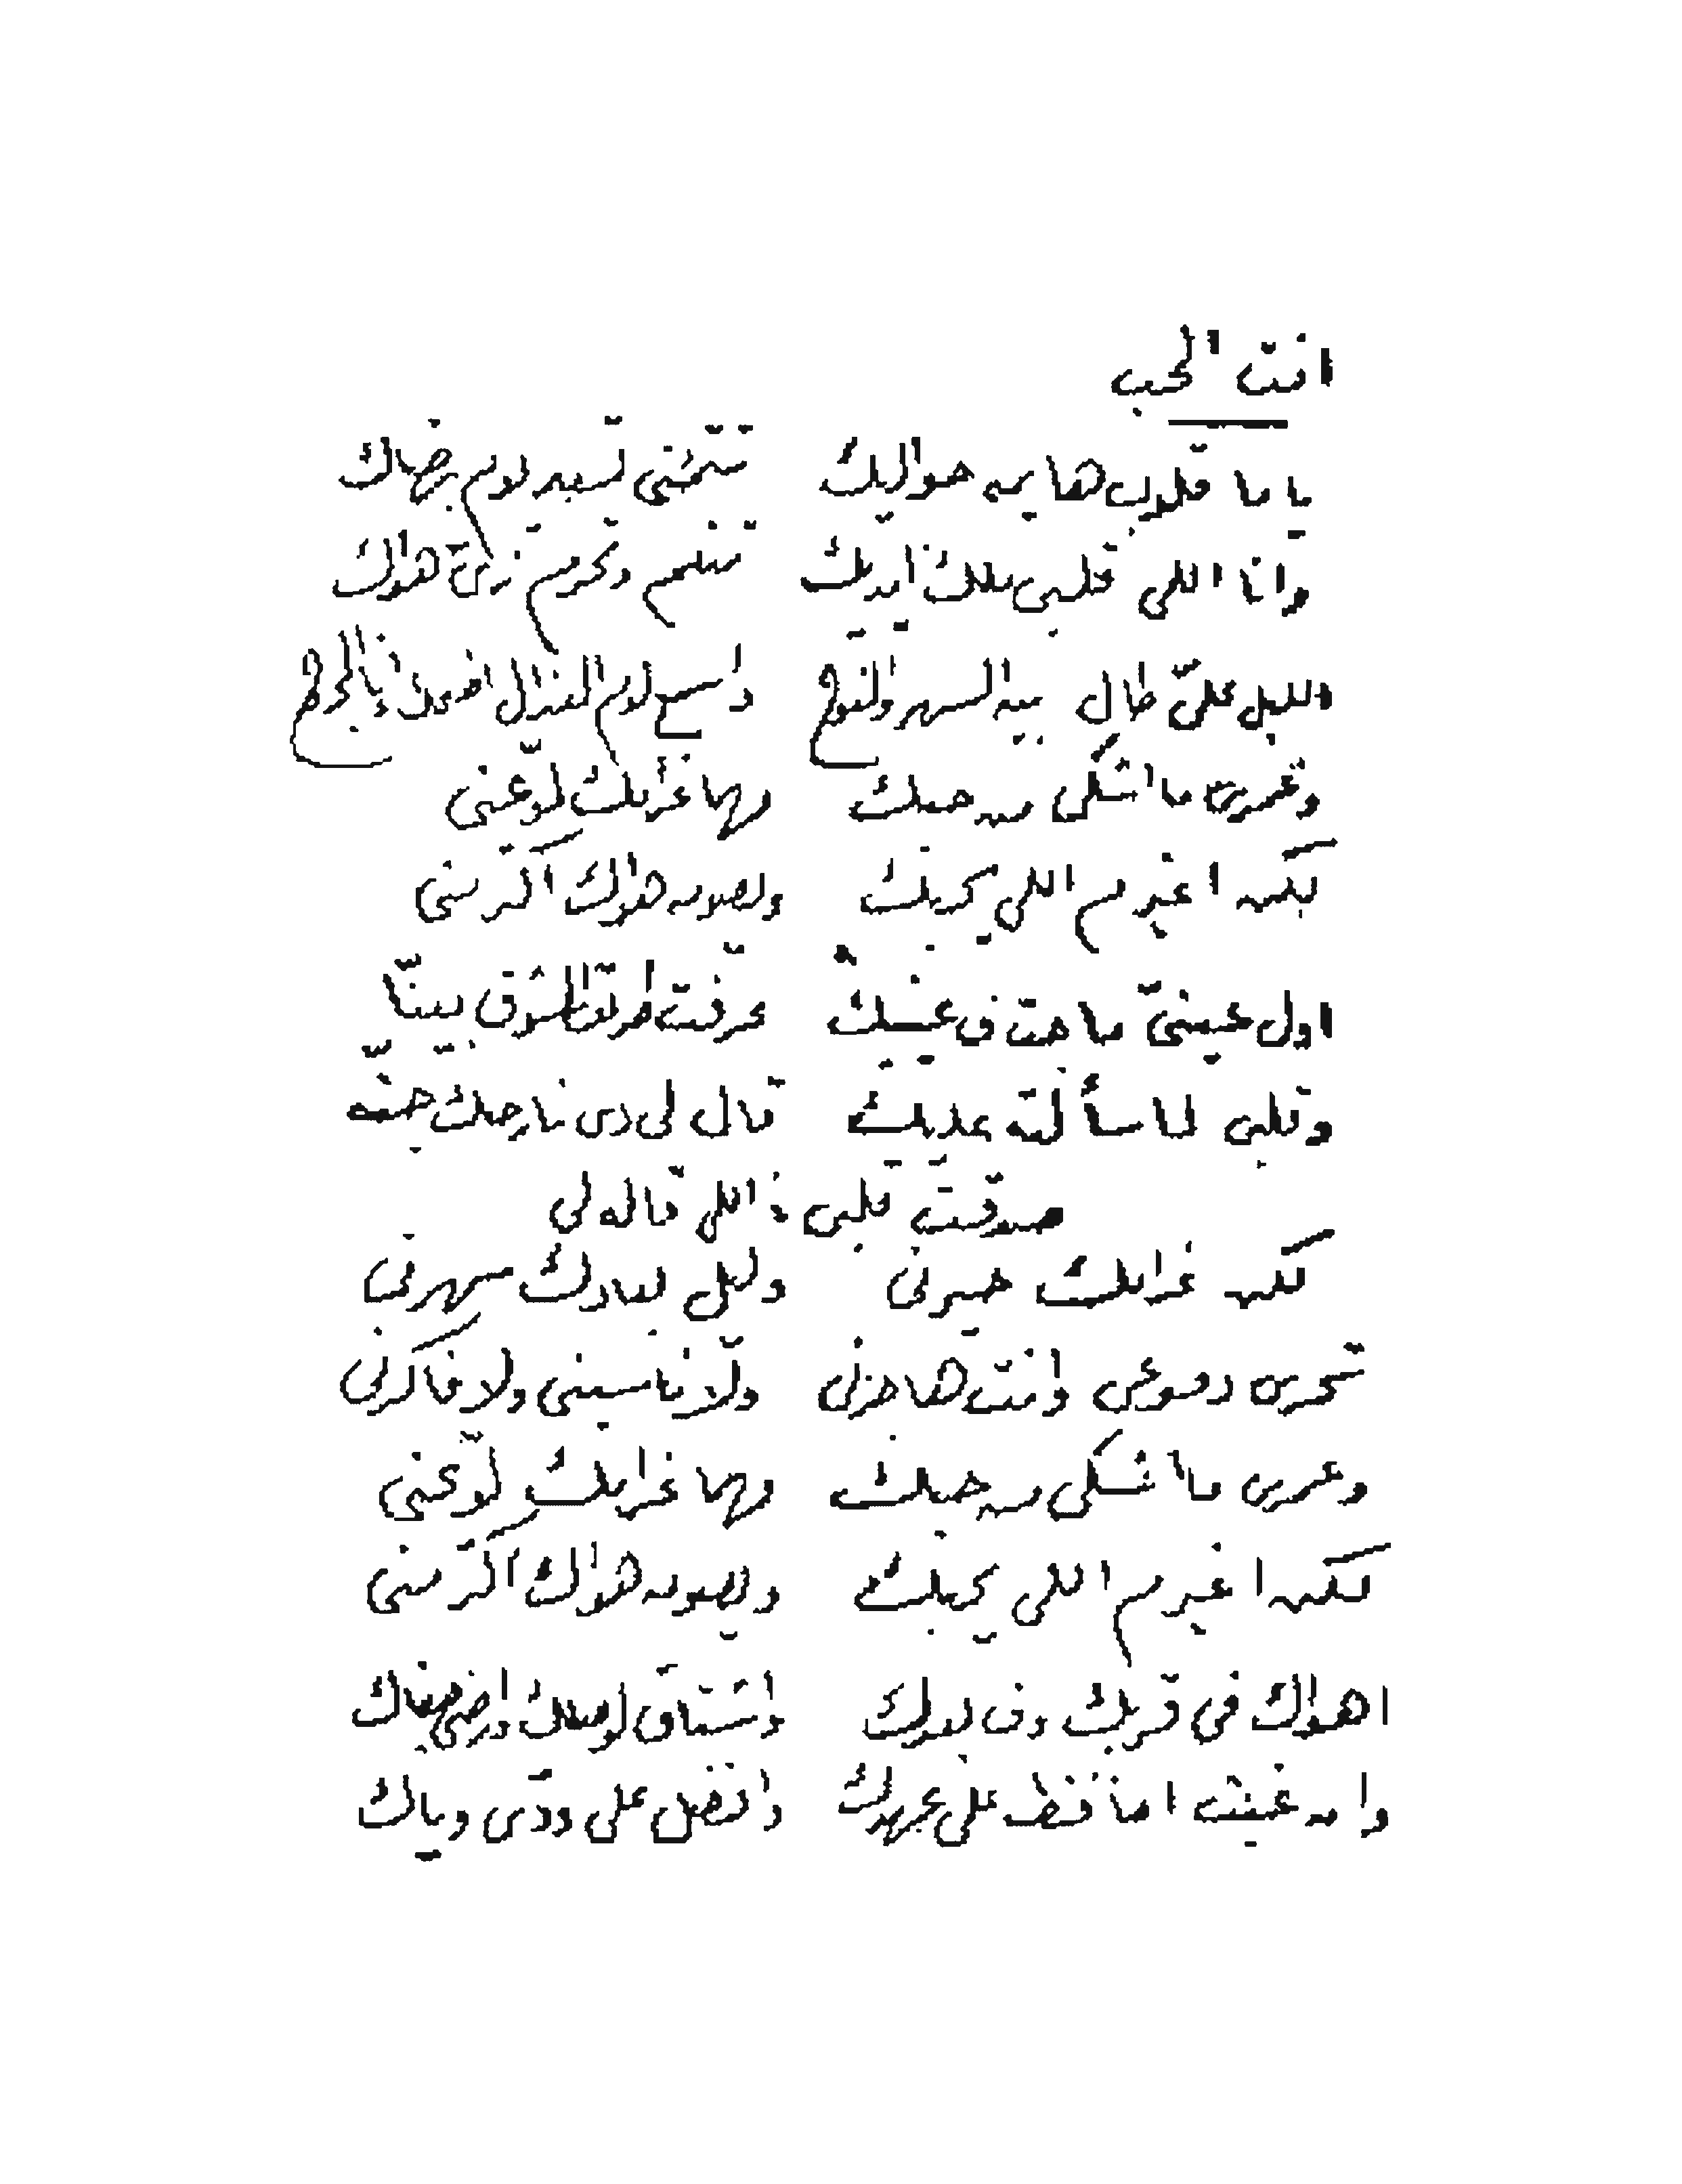 انت الحب
يا ما قلوب هايمه حواليك تتمنى تسعد يوم برضاك
وانا اللى قلبى ملك ايديك تنعم وتحرم زىّ هواك
الليل علىّ طال بين السهر والنوح واسمع لوم العذال اضحك وانا المجروح
وعمرى ما اشكى من حبك مهما غرامك لوّعنى
لكن اغير م اللى يحبك ويصون هواك اكتر منى
اول عينىّ ما جت ف عينيك عرفت طريق الشوق بينّا
وقلبى لما سألته عليك قال لى دى نار حبك جنّه
صدقت قلبى ف اللى قاله لى
لكن غرامك حيرنى وليل بعادك سهرنى
تجرى دموعى وانت هاجرنى ولا ناسينى ولا فاكرنى
وعمرى ما اشكى من حبك مهما غرامك لوّعنى
لكن اغير م اللى يحبك ويصون هواك اكتر منى
اهواك فى قربك وف بعدك واشتاق لوصلك وارضى جفاك
وان غبت احافظ على عهدك وافضل على ودّى وياك